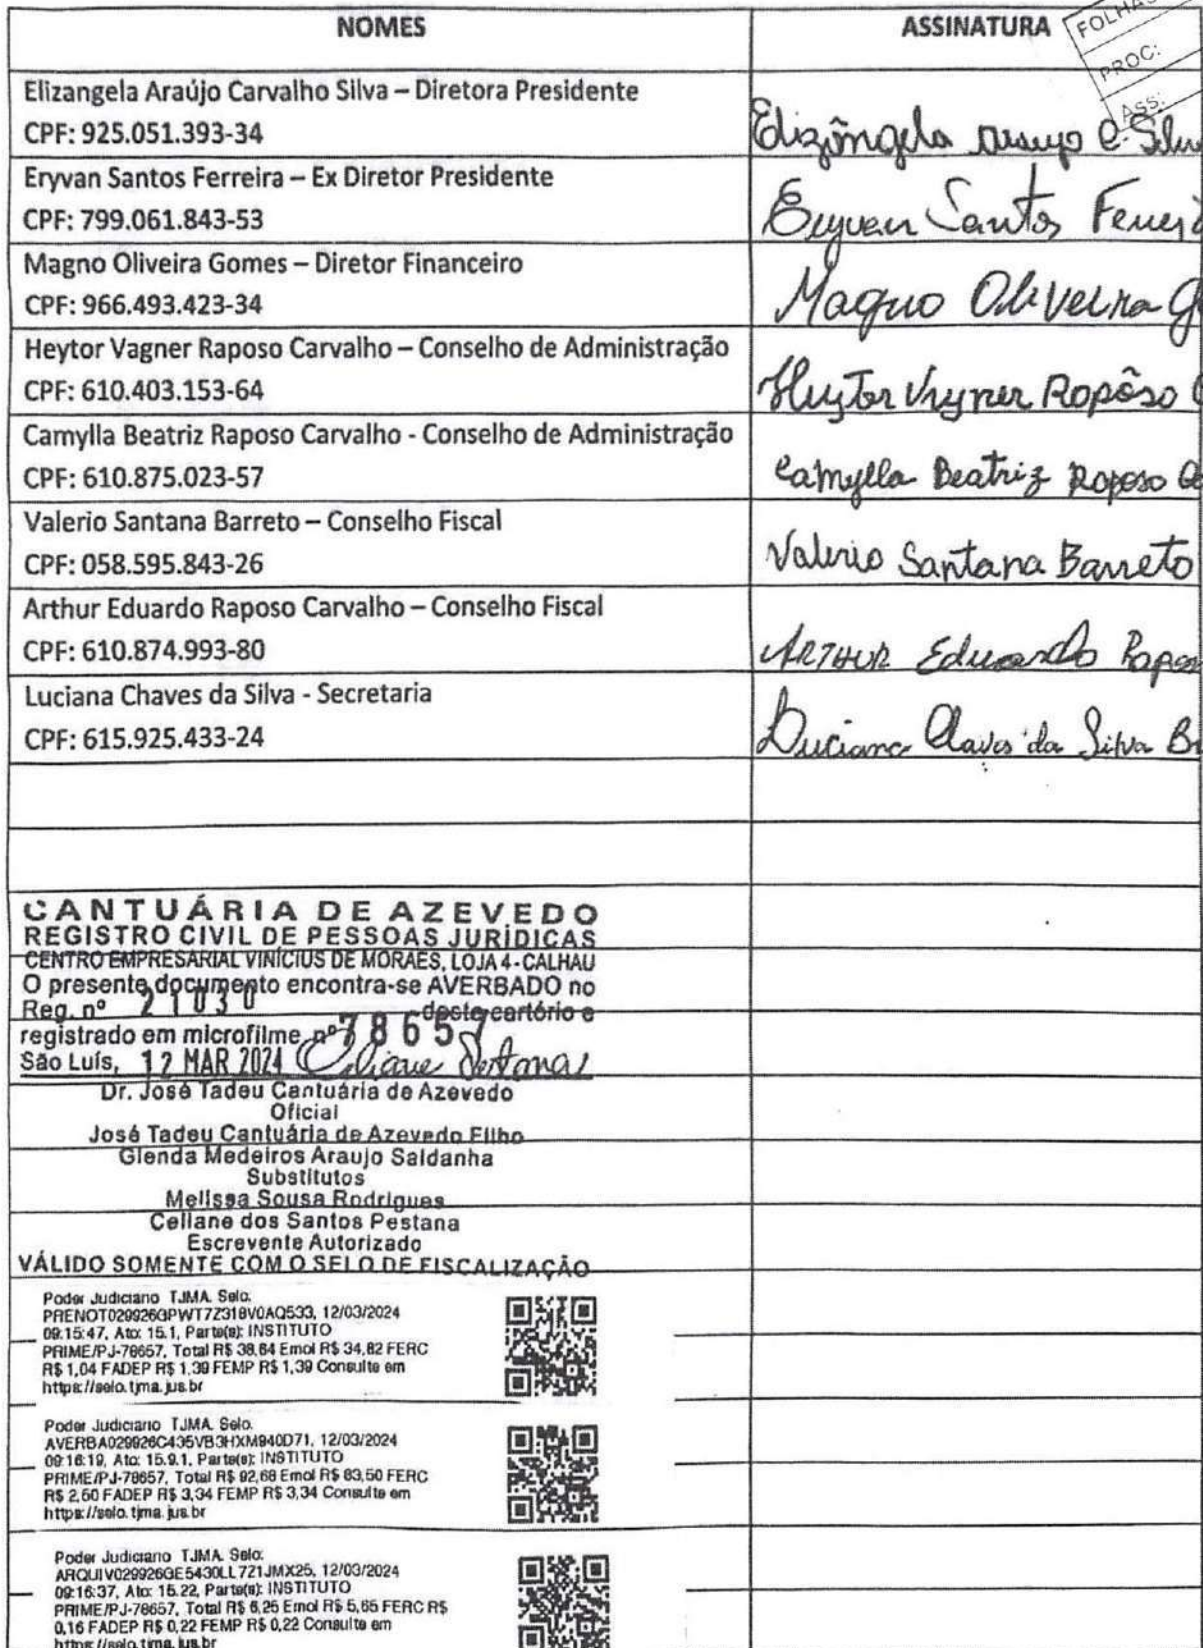 NOMES
ASSINATURA
FOLHAS
PROC:
ASS:
Elizangela Araújo Carvalho Silva – Diretora Presidente
CPF: 925.051.393-34
Elizângela Araujo C. Silva
Eryvan Santos Ferreira – Ex Diretor Presidente
CPF: 799.061.843-53
Eryvan Santos Ferreira
Magno Oliveira Gomes – Diretor Financeiro
CPF: 966.493.423-34
Magno Oliveira G
Heytor Vagner Raposo Carvalho – Conselho de Administração
CPF: 610.403.153-64
Heytor Vagner Rapôso C
Camylla Beatriz Raposo Carvalho - Conselho de Administração
CPF: 610.875.023-57
Camylla Beatriz Raposo Ca
Valerio Santana Barreto – Conselho Fiscal
CPF: 058.595.843-26
Valerio Santana Barreto
Arthur Eduardo Raposo Carvalho – Conselho Fiscal
CPF: 610.874.993-80
ARTHUR Eduardo Rapos
Luciana Chaves da Silva - Secretaria
CPF: 615.925.433-24
Luciana Chaves da Silva Br
CANTUÁRIA DE AZEVEDO
REGISTRO CIVIL DE PESSOAS JURÍDICAS
CENTRO EMPRESARIAL VINÍCIUS DE MORAES, LOJA 4 - CALHAU
O presente documento encontra-se AVERBADO no
Reg. nº 21030 deste cartório e
registrado em microfilme nº 78657
São Luís, 12 MAR 2024 Celiane Pestana
Dr. José Tadeu Cantuária de Azevedo
Oficial
José Tadeu Cantuária de Azevedo Filho
Glenda Medeiros Araujo Saldanha
Substitutos
Melissa Sousa Rodrigues
Celiane dos Santos Pestana
Escrevente Autorizado
VÁLIDO SOMENTE COM O SELO DE FISCALIZAÇÃO
Poder Judiciário TJMA. Selo:
PRENOT029926GPWT7Z318V0AQ533, 12/03/2024
09:15:47, Ato: 15.1, Parte(s): INSTITUTO
PRIME/PJ-78657, Total R$ 38,64 Emol R$ 34,82 FERC
R$ 1,04 FADEP R$ 1,39 FEMP R$ 1,39 Consulte em
https://selo.tjma.jus.br
Poder Judiciário TJMA. Selo:
AVERBA029926C435VB3HXM940D71, 12/03/2024
09:16:19, Ato: 15.9.1, Parte(s): INSTITUTO
PRIME/PJ-78657, Total R$ 92,68 Emol R$ 83,50 FERC
R$ 2,50 FADEP R$ 3,34 FEMP R$ 3,34 Consulte em
https://selo.tjma.jus.br
Poder Judiciário TJMA. Selo:
ARQUIV029926GE5430LL721JMX25, 12/03/2024
09:16:37, Ato: 15.22, Parte(s): INSTITUTO
PRIME/PJ-78657, Total R$ 6,25 Emol R$ 5,65 FERC R$
0,16 FADEP R$ 0,22 FEMP R$ 0,22 Consulte em
https://selo.tjma.jus.br